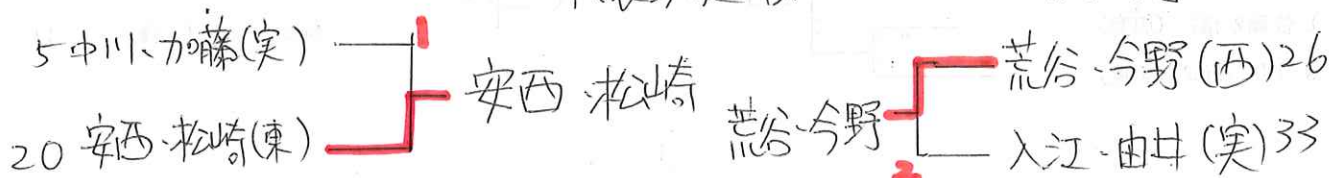 5 中川・加藤(実)
1
20 安西・松崎(東)
安西・松崎
荒谷・今野
荒谷・今野(西)26
入江・由井(実)33
2